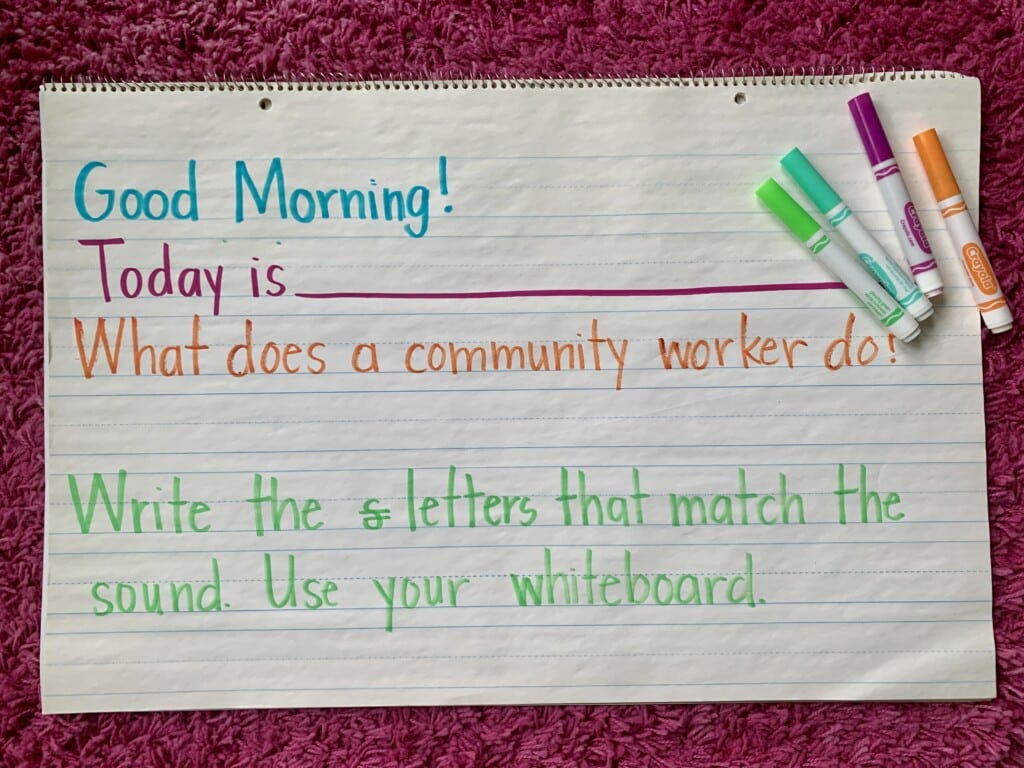 Good Morning!
Today is
What does a community worker do?
Write the letters that match the
sound. Use your whiteboard.
Crayola
Crayola
Crayola